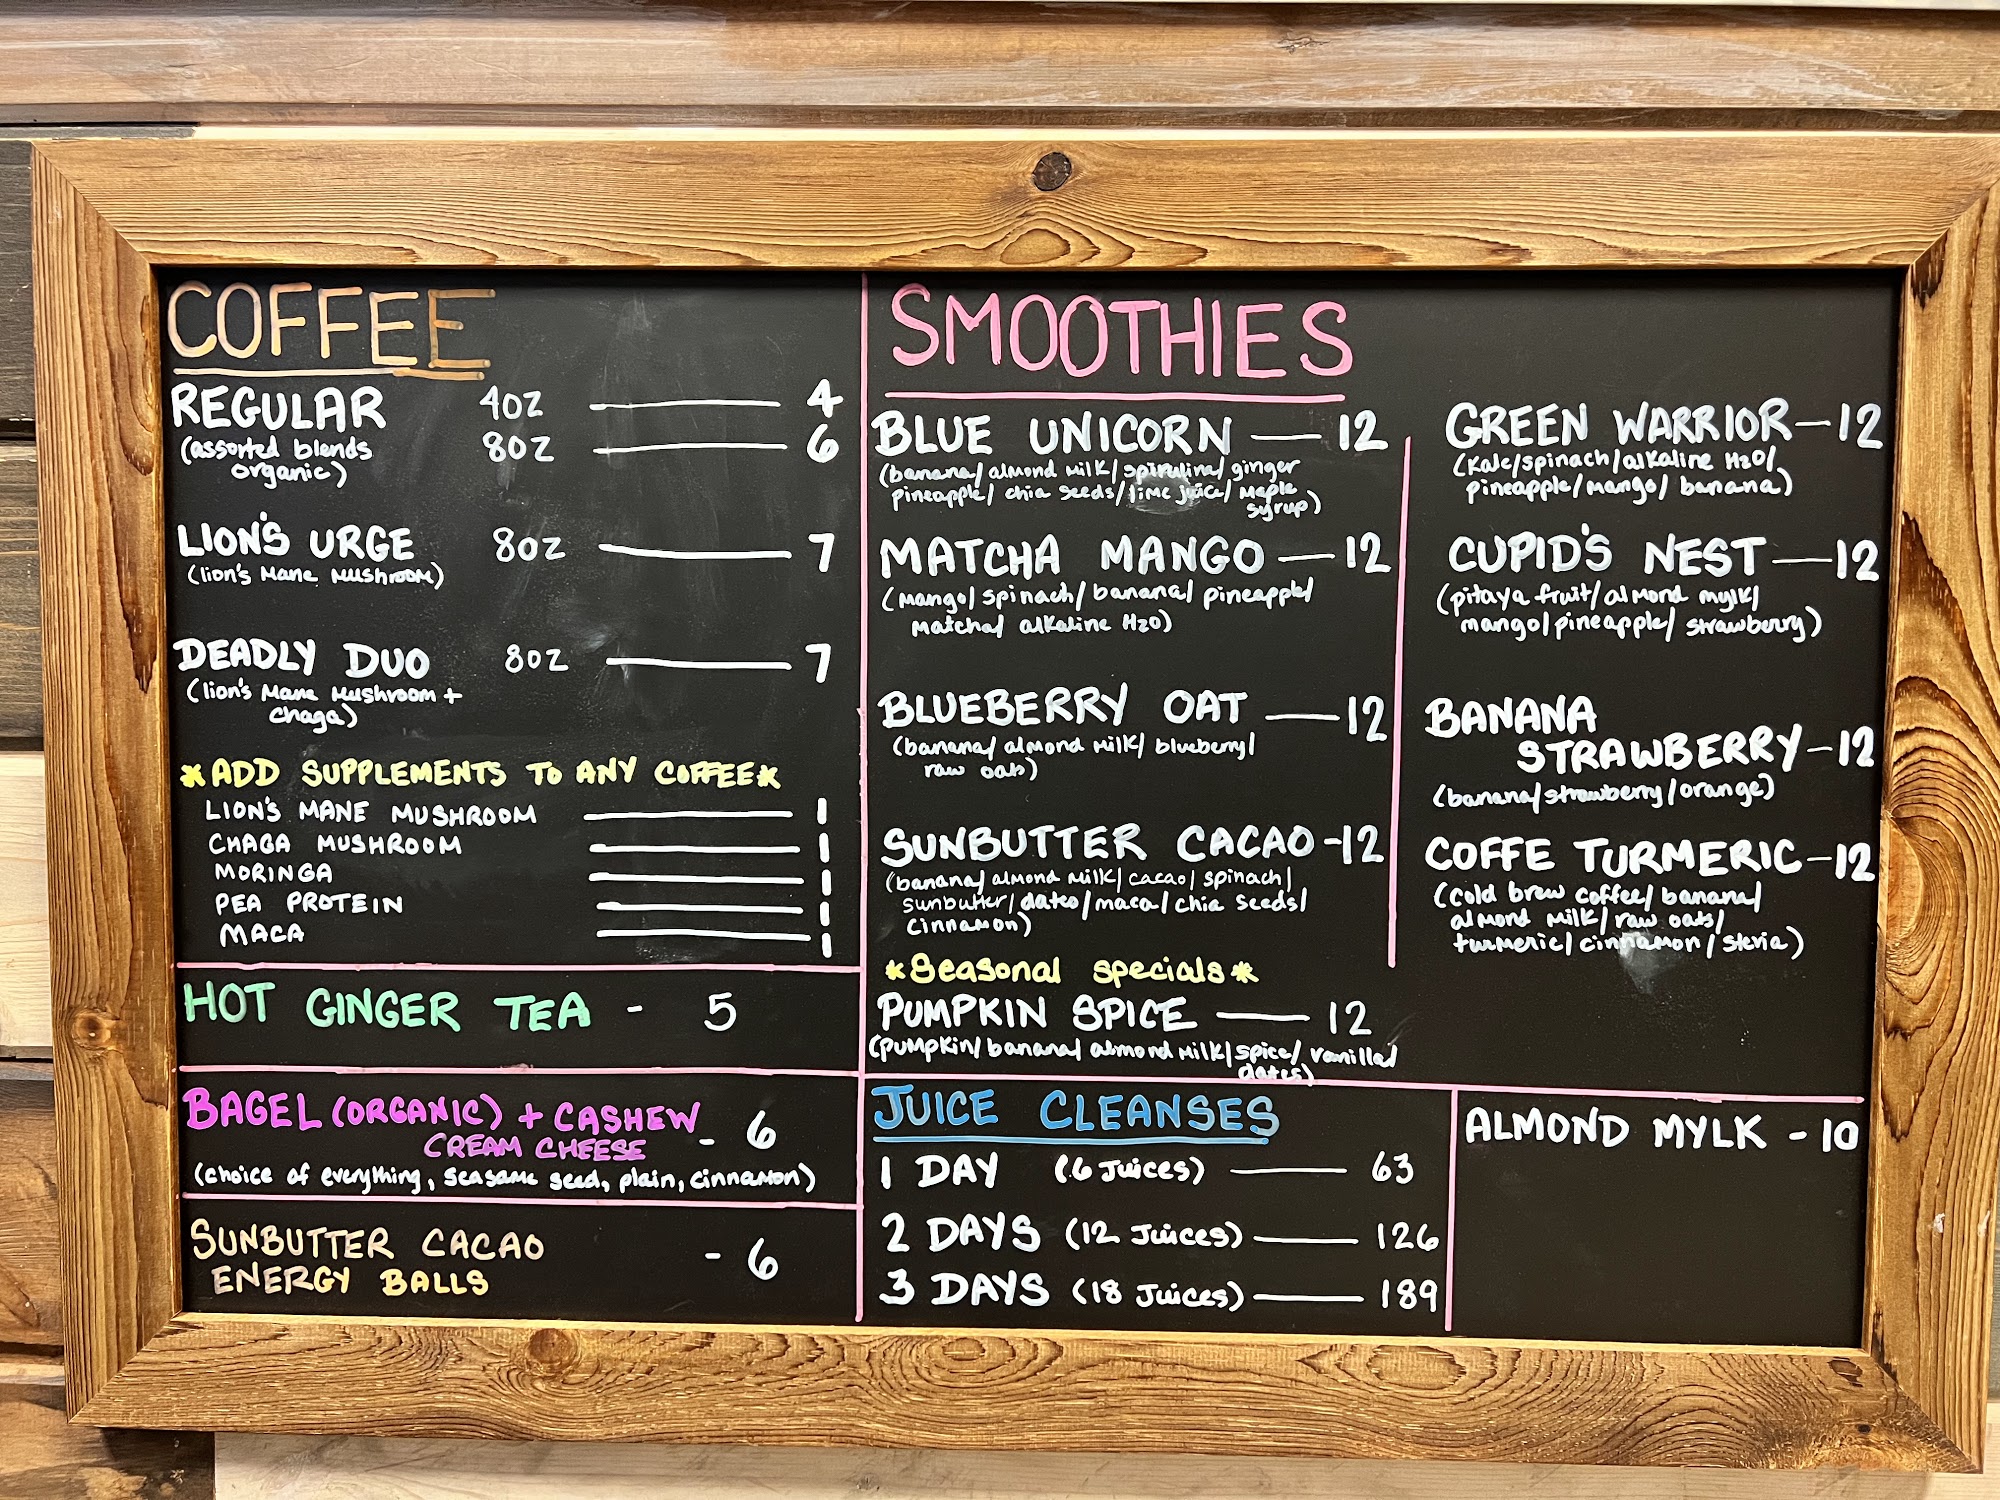 COFFEE
REGULAR 4OZ 4
(assorted blends 8OZ 6
organic)
LION'S URGE 8OZ 7
(lion's Mane Mushroom)
DEADLY DUO 8OZ 7
(lion's Mane Mushroom +
chaga)
*ADD SUPPLEMENTS TO ANY COFFEE*
LION'S MANE MUSHROOM 1
CHAGA MUSHROOM 1
MORINGA 1
PEA PROTEIN 1
MACA 1
HOT GINGER TEA - 5
BAGEL (ORGANIC) + CASHEW
CREAM CHEESE - 6
(choice of everything, seasame seed, plain, cinnamon)
SUNBUTTER CACAO - 6
ENERGY BALLS
SMOOTHIES
BLUE UNICORN — 12
(banana/ almond milk/ spirulina/ ginger
pineapple/ chia seeds/ lime juice/ Maple
syrup)
MATCHA MANGO — 12
(Mango/ spinach/ banana/ pineapple/
Matcha/ alkaline H2O)
BLUEBERRY OAT — 12
(banana/ almond milk/ blueberry/
raw oats)
SUNBUTTER CACAO - 12
(banana/ almond milk/ cacao/ spinach/
sunbutter/ dates/ maca/ chia seeds/
cinnamon)
*Seasonal specials*
PUMPKIN SPICE — 12
(pumpkin/ banana/ almond milk/ spice/ vanilla/
dates)
GREEN WARRIOR — 12
(Kale/spinach/alkaline H2O/
pineapple/mango/ banana)
CUPID'S NEST — 12
(pitaya fruit/ almond mylk/
mango/pineapple/ strawberry)
BANANA
STRAWBERRY - 12
(banana/strawberry/orange)
COFFE TURMERIC - 12
(cold brew coffee/ banana/
almond milk/ raw oats/
turmeric/ cinnamon/ stevia)
JUICE CLEANSES
1 DAY (6 Juices) — 63
2 DAYS (12 Juices) — 126
3 DAYS (18 Juices) — 189
ALMOND MYLK - 10